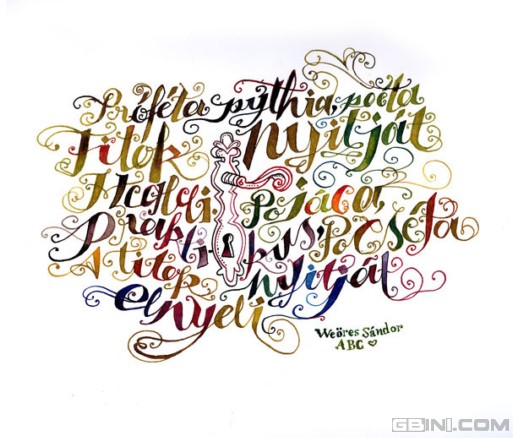 Próféta pythia, poéta
Titok nyitját
Megleli; Pojáca,
Praktikus, Pocséta
A titok nyitját
elnyeli
Weöres Sándor
ABC
GBIN1.COM